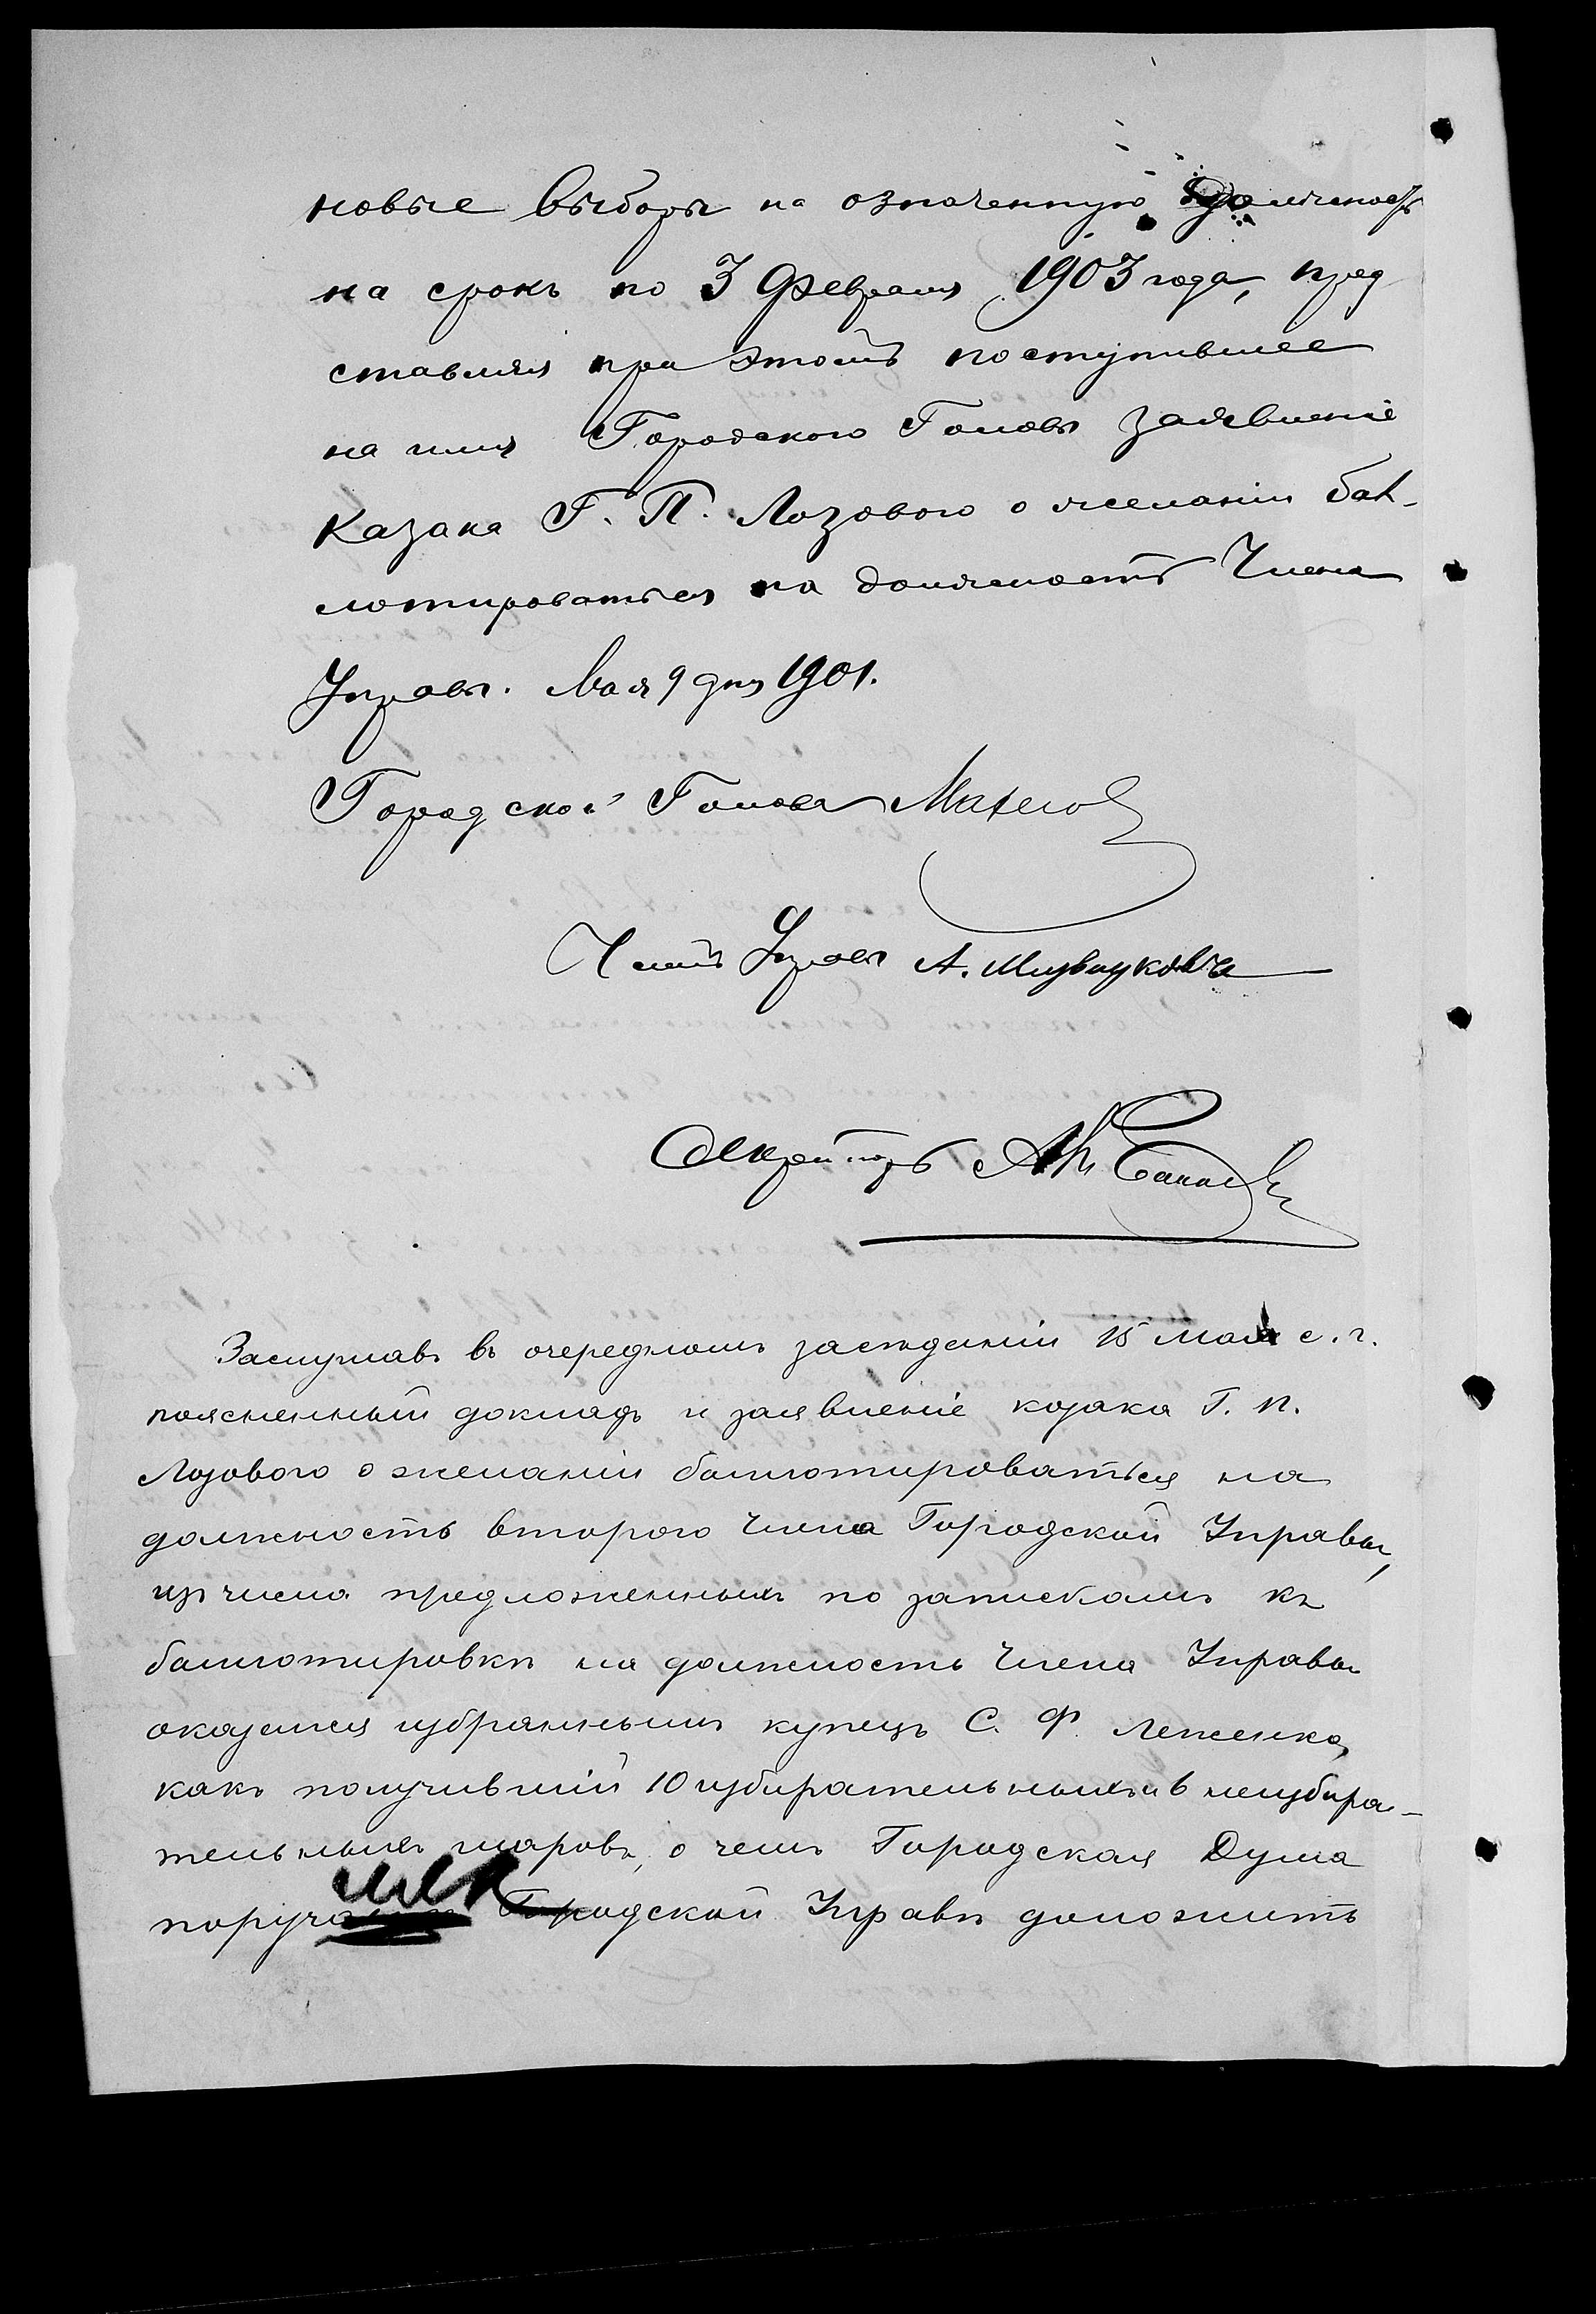 новые выборы на означенную должность
на срокъ по 3 Февраля 1903 года, пред
ставляя при этомъ поступившее
на имя Городского Головы заявленіе
Казака Г. П. Лозового о желаніи бал-
лотироваться на должность Члена
Управы. Мая 9 дня 1901.
Городской Голова
Членъ Управы А.
Секретарь
Заслушавъ въ очередномъ засѣданіи 15 мая с. г.
поясненный докладъ и заявленіе козака Г. П.
Лозового о желаніи баллотироваться на
должность второго члена Городской Управы,
изъ числа предложенныхъ по запискамъ къ
баллотировкѣ на должность Члена Управы
оказался избраннымъ купецъ С. Ф. Леженко,
какъ получившій 10 избирательныхъ и 6 неизбира-
тельныхъ шаровъ, о чемъ Городская Дума
Городской Управѣ доложить